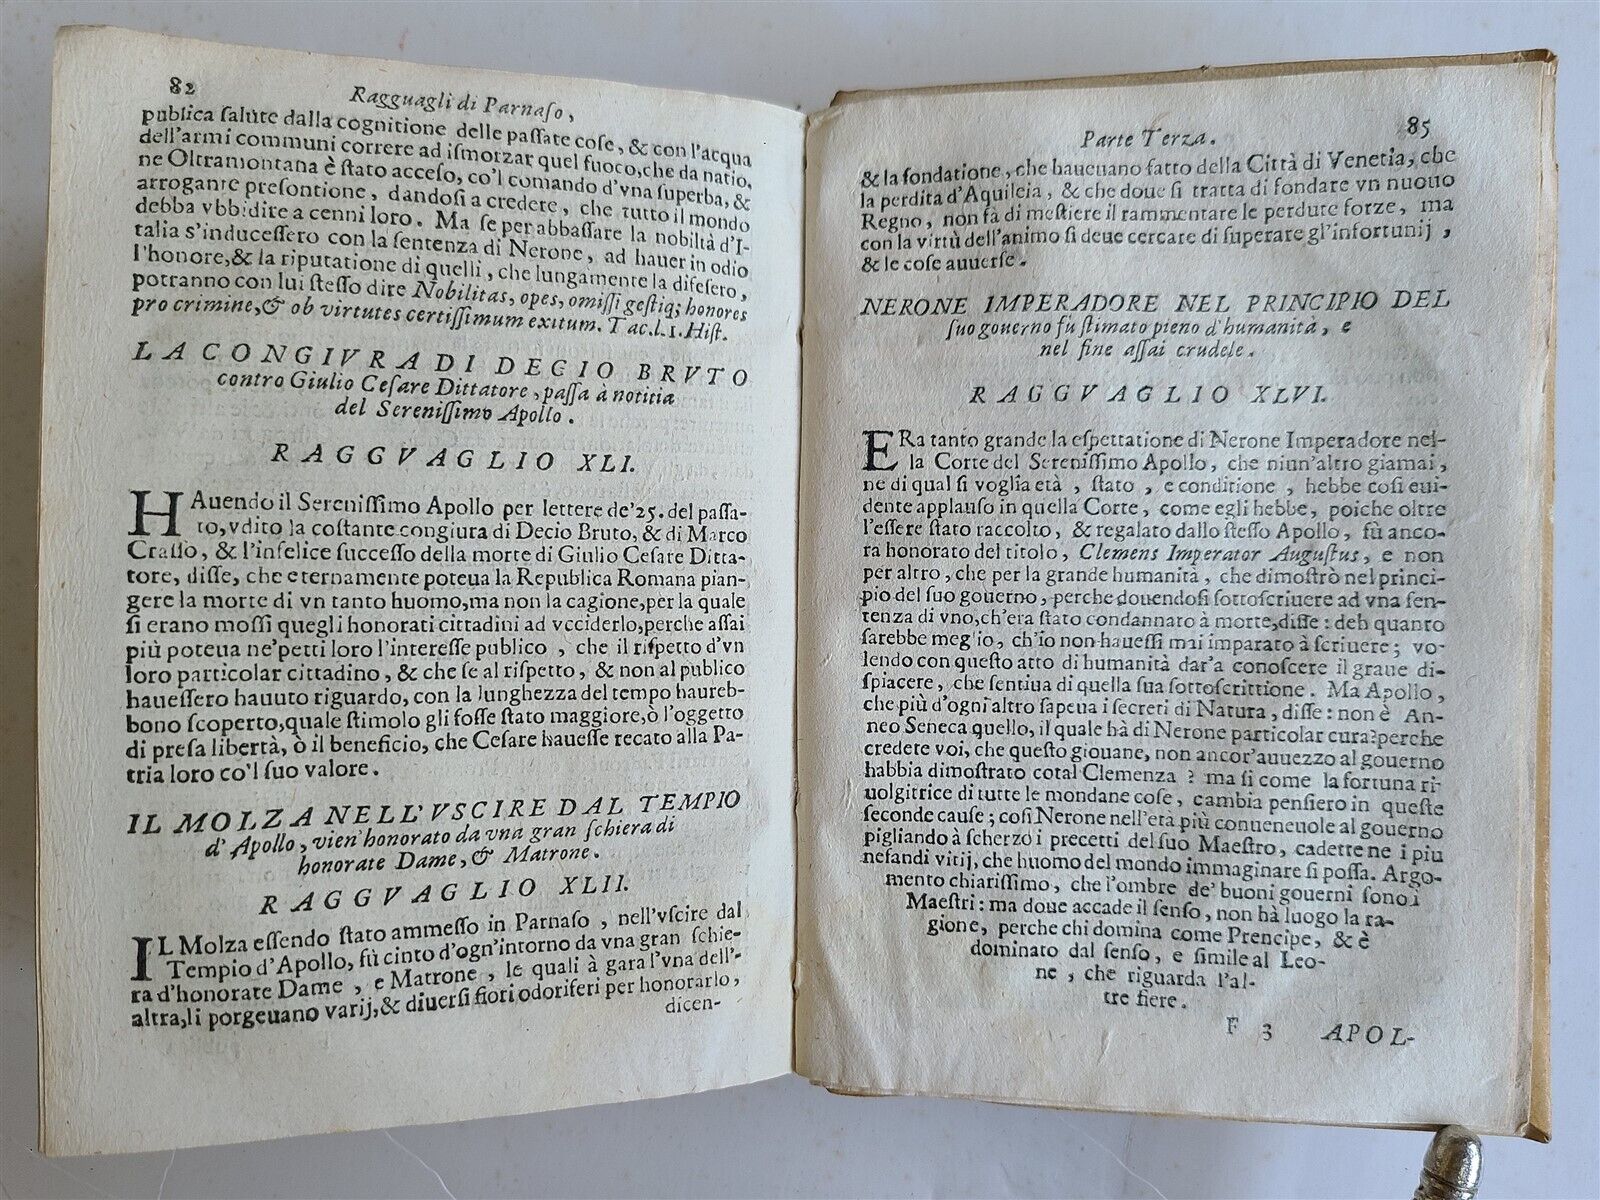 82 Ragguagli di Parnaſo,
publica ſalute dalla cognitione delle paſſate coſe, & con l'acqua
dell'armi communi correre ad iſmorzar quel fuoco, che da natio.
ne Oltramontana è ſtato acceſo, co'l comando d'vna ſuperba, &
arrogante preſontione, dandoſi a credere, che tutto il mondo
debba vbbidire a cenni loro. Ma ſe per abbaſſare la nobiltà d'I-
talia s'induceſſero con la ſentenza di Nerone, ad hauer in odio
l'honore, & la riputatione di quelli, che lungamente la difeſero,
potranno con lui ſteſſo dire Nobilitas, opes, omiſſi geſtiq; honores
pro crimine, & ob virtutes certiſſimum exitum. Tac. l. 1. Hiſt.
LA CONGIVRA DI DECIO BRVTO
contro Giulio Ceſare Dittatore, paſſa à notitia
del Sereniſſimo Apollo.
RAGGVAGLIO XLI.
HAuendo il Sereniſſimo Apollo per lettere de'25. del paſſa-
to, vdito la coſtante congiura di Decio Bruto, & di Marco
Craſſo, & l'infelice ſucceſſo della morte di Giulio Ceſare Ditta-
tore, diſſe, che eternamente poteua la Republica Romana pian-
gere la morte di vn tanto huomo, ma non la cagione, per la quale
ſi erano moſſi quegli honorati cittadini ad vcciderlo, perche aſſai
più poteua ne'petti loro l'intereſſe publico, che il riſpetto d'vn
loro particolar cittadino, & che ſe al riſpetto, & non al publico
haueſſero hauuto riguardo, con la lunghezza del tempo haureb-
bono ſcoperto, quale ſtimolo gli foſſe ſtato maggiore, ò l'oggetto
di preſa libertà, ò il beneficio, che Ceſare haueſſe recato alla Pa-
tria loro co'l ſuo valore.
IL MOLZA NELL'VSCIRE DAL TEMPIO
d'Apollo, vien'honorato da vna gran ſchiera di
honorate Dame, & Matrone.
RAGGVAGLIO XLII.
IL Molza eſſendo ſtato ammeſſo in Parnaſo, nell'vſcire dal
Tempio d'Apollo, fù cinto d'ogn'intorno da vna gran ſchie-
ra d'honorate Dame, e Matrone, le quali à gara l'vna dell'-
altra, li porgeuano varij, & diuerſi fiori odoriferi per honorarlo,
dicen-
Parte Terza. 85
& la fondatione, che haueuano fatto della Città di Venetia, che
la perdita d'Aquileia, & che doue ſi tratta di fondare vn nuouo
Regno, non fà di meſtiere il rammentare le perdute forze, ma
con la virtù dell'animo ſi deue cercare di ſuperare gl'infortunij,
& le coſe auuerſe.
NERONE IMPERADORE NEL PRINCIPIO DEL
ſuo gouerno fù ſtimato pieno d'humanità, e
nel fine aſſai crudele.
RAGGVAGLIO XLVI.
ERa tanto grande la eſpettatione di Nerone Imperadore nel-
la Corte del Sereniſſimo Apollo, che niun'altro giamai,
ne di qual ſi voglia età, ſtato, e conditione, hebbe coſi eui-
dente applauſo in quella Corte, come egli hebbe, poiche oltre
l'eſſere ſtato raccolto, & regalato dallo ſteſſo Apollo, fù anco-
ra honorato del titolo, Clemens Imperator Auguſtus, e non
per altro, che per la grande humanità, che dimoſtrò nel princi-
pio del ſuo gouerno, perche douendoſi ſottoſcriuere ad vna ſen-
tenza di vno, ch'era ſtato condannato à morte, diſſe: deh quanto
ſarebbe meg'io, ch'io non haueſſi mai imparato à ſcriuere; vo-
lendo con queſto atto di humanità dar'a conoſcere il graue di-
ſpiacere, che ſentiua di quella ſua ſottoſcrittione. Ma Apollo,
che più d'ogni altro ſapeua i ſecreti di Natura, diſſe: non è An-
neo Seneca quello, il quale hà di Nerone particolar cura? perche
credete voi, che queſto giouane, non ancor'auuezzo al gouerno
habbia dimoſtrato cotal Clemenza? ma ſi come la fortuna ri
uolgitrice di tutte le mondane coſe, cambia penſiero in queſte
ſeconde cauſe; coſi Nerone nell'età più conueneuole al gouerno
pigliando à ſcherzo i precetti del ſuo Maeſtro, cadette ne i piu
nefandi vitij, che huomo del mondo immaginare ſi poſſa. Argo-
mento chiariſſimo, che l'ombre de' buoni gouerni ſono i
Maeſtri: ma doue accade il ſenſo, non hà luogo la ra-
gione, perche chi domina come Prencipe, & è
dominato dal ſenſo, e ſimile al Leo-
ne, che riguarda l'al-
tre fiere.
F 3 APOL-